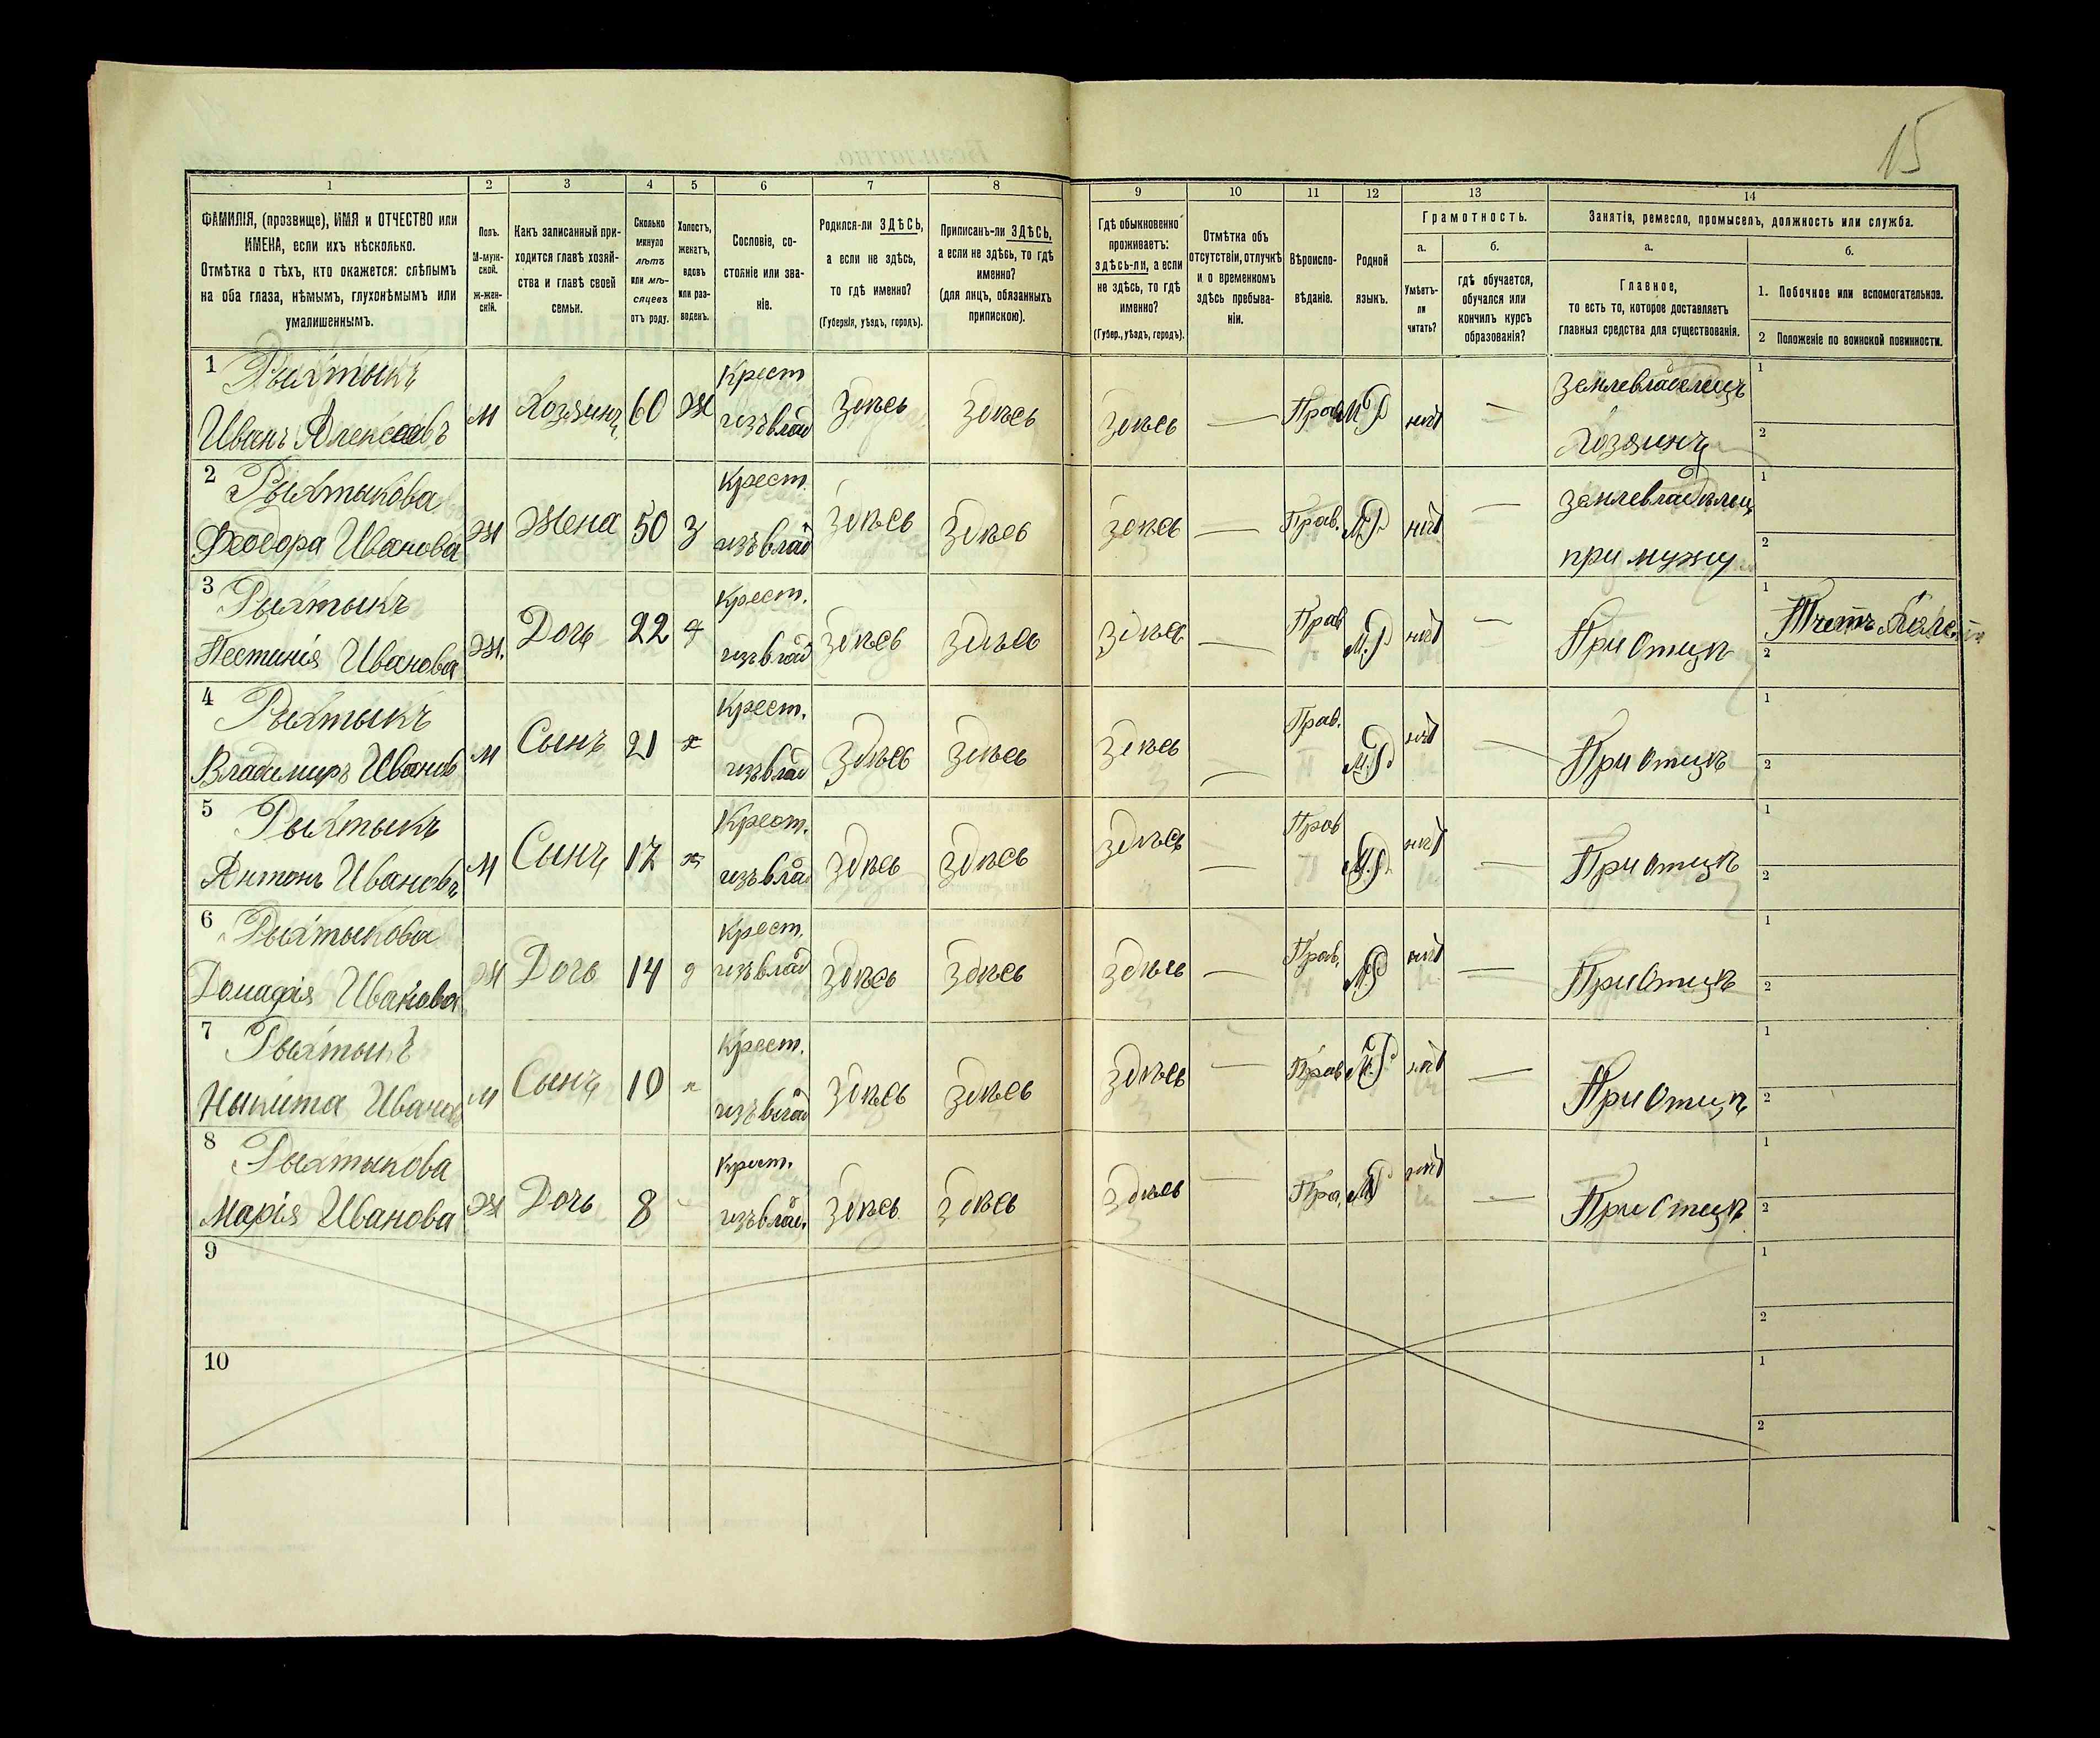 15
1 2 3 4 5 6 7 8 9 10 11 12 13 14
ФАМИЛІЯ, (прозвище), ИМЯ и ОТЧЕСТВО или
ИМЕНА, если ихъ нѣсколько.
Отмѣтка о тѣхъ, кто окажется: слѣпымъ
на оба глаза, нѣмымъ, глухонѣмымъ или
умалишеннымъ.
Полъ.
М-муж-
ской.
Ж-жен-
скій.
Какъ записанный при-
ходится главѣ хозяй-
ства и главѣ своей
семьи.
Сколько
минуло
лѣтъ
или мѣ-
сяцевъ
отъ роду.
Холостъ,
женатъ,
вдовъ
или раз-
веденъ.
Сословіе, со-
стояніе или зва-
ніе.
Родился-ли ЗДѢСЬ,
а если не здѣсь,
то гдѣ именно?
(Губернія, уѣздъ, городъ).
Приписанъ-ли ЗДѢСЬ,
а если не здѣсь, то гдѣ
именно?
(для лицъ, обязанныхъ
припискою).
Гдѣ обыкновенно
проживаетъ:
здѣсь-ли, а если
не здѣсь, то гдѣ
именно?
(Губер., уѣздъ, городъ).
Отмѣтка объ
отсутствіи, отлучкѣ
и о временномъ
здѣсь пребыва-
ніи.
Вѣроиспо-
вѣданіе.
Родной
языкъ.
Грамотность.
а.
Умѣетъ-
ли
читать?
б.
гдѣ обучается,
обучался или
кончилъ курсъ
образованія?
Занятіе, ремесло, промыселъ, должность или служба.
а.
Главное,
то есть то, которое доставляетъ
главныя средства для существованія.
б.
1. Побочное или вспомогательное.
2 Положеніе по воинской повинности.
1 Рыхтыкъ Крест землевладелецъ 1
Иванъ Алексеевъ м Хозяинъ 60 ж изъ влад Здѣсь Здѣсь Здѣсь — Прав М.Р нѣт — Хозяинъ 2
2 Рыхтыкова Крест. землевладѣлец 1
Ѳеодора Иванова ж Жена 50 з изъ влад Здѣсь Здѣсь Здѣсь — Прав. М.Р. нѣт — при мужу 2
3 Рыхтыкъ Крест. 1
Пестинія Иванова ж. Дочь 22 д изъ влад Здѣсь Здѣсь Здѣсь — Прав М.Р нѣт — При Отцѣ 2
4 Рыхтыкъ Крест. 1
Владимиръ Иванов м Сынъ 21 х изъ влад Здѣсь Здѣсь Здѣсь — Прав. М.Р. нѣт — При Отцѣ 2
5 Рыхтыкъ Крест. 1
Антонъ Ивановъ м Сынъ 17 х изъ вла Здѣсь Здѣсь Здѣсь — Прав М.Р. нѣт — При Отцѣ 2
6 Рыхтыкова Крест. 1
Иванова ж Дочь 14 д изъ влад Здѣсь Здѣсь Здѣсь — Прав. М.Р нѣт — При Отцѣ 2
7 Рыхтыкъ Крест. 1
Никита Иванов м Сынъ 10 х изъ влад Здѣсь Здѣсь Здѣсь — Прав М.Р. нѣт — При Отцѣ 2
8 Рыхтыкова Крест. 1
Марія Иванова ж Дочь 8 изъ влад. Здѣсь Здѣсь Здѣсь — Пра. М.Р нѣт — При Отцѣ 2
9 1
2
10 1
2